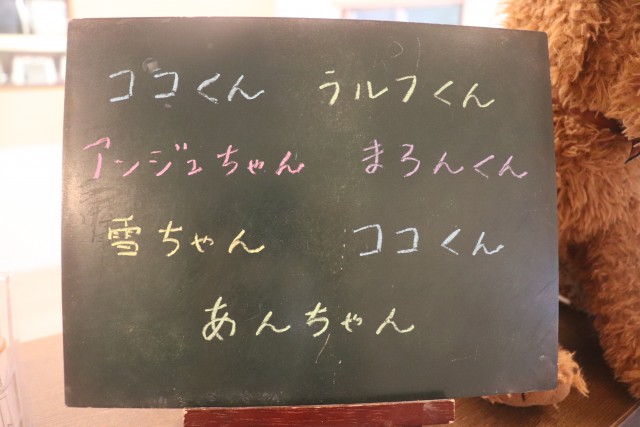 ココくん ラルフくん
アンジュちゃん まろんくん
雪ちゃん ココくん
あんちゃん